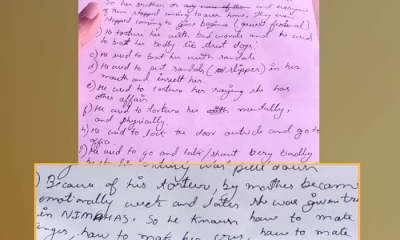 So her brother or any none of them and everyone
of them stopped coming to our home. They even
stopped coming to give bagina (gowri festival)
b) He torture her with bad words and he used
to beat her badly like street dogs.
c) He used to beat her with sandals
d) He used to put sandals (slipper) in her
mouth and insult her.
e) He used to torture her saying she has
other affair
f) He used to torture her mentally,
and physically
h) He used to lock the door outside and go to
office
He used to go and talk/shout very badly
) Because of his torture, by mother became
emotionally weak and later she was given tre
in NIMHAS. So he knows how to make
how to make her cry, how to make